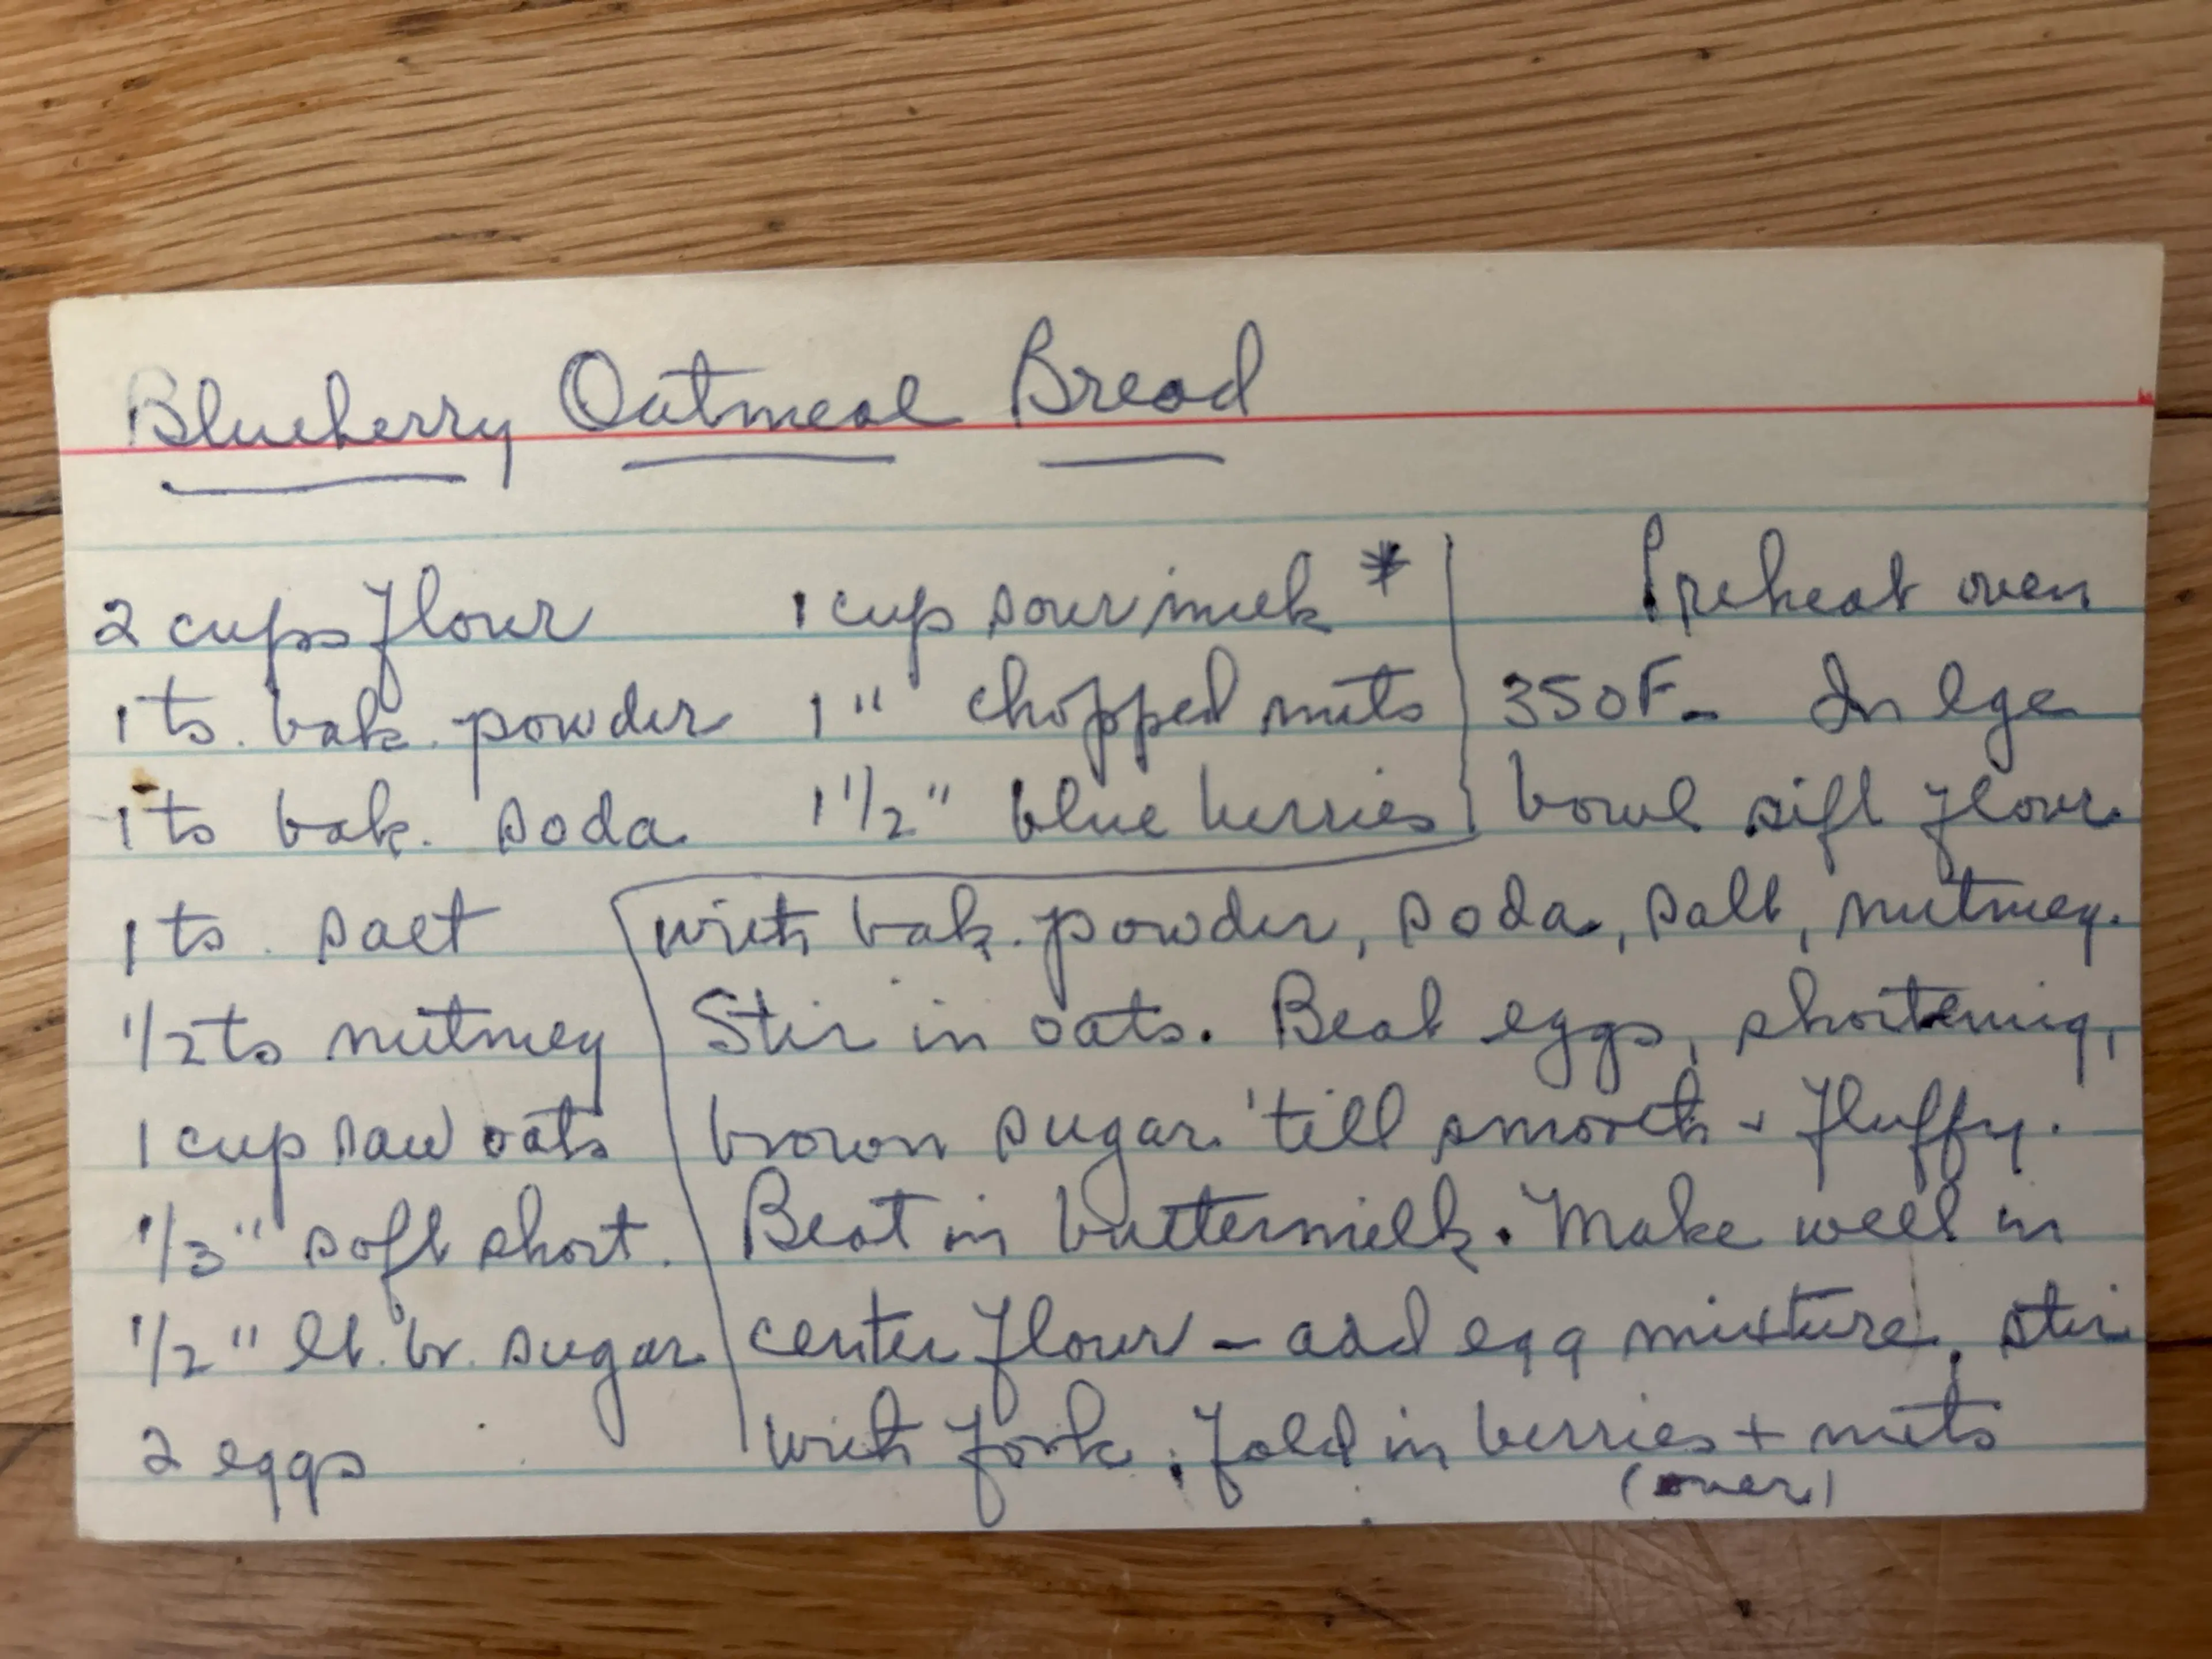 Blueberry Oatmeal Bread
2 cups flour
1 ts. bak. powder
1 ts bak. soda
1 ts. salt
1/2 ts nutmeg
1 cup raw oats
1/3 " soft short.
1/2 " lt. br. sugar
2 eggs
1 cup sour milk *
1 " chopped nuts
1 1/2 " blue berries
Preheat oven
350F- In lge
bowl sift flour
with bak. powder, soda, salt, nutmeg.
Stir in oats. Beat eggs, shortening,
brown sugar 'till smooth + fluffy.
Beat in buttermilk. Make well in
center flour - add egg mixture, stir
with fork. Fold in berries + nuts
(over)